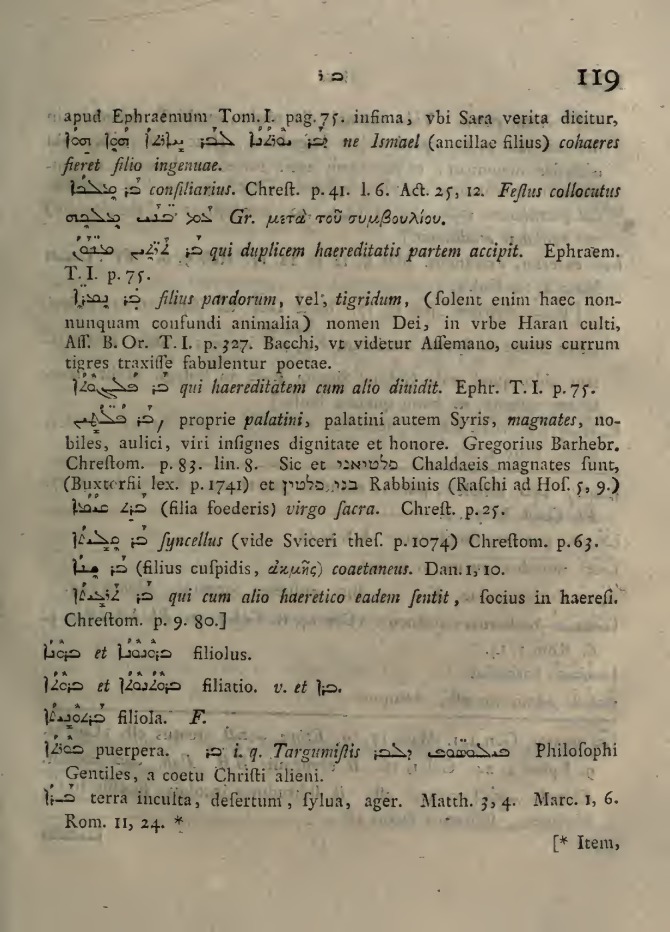 119
apud Ephraemum Tom. I. pag. 75. infima, vbi Sara verita dicitur,
ne Ismael (ancillae filius) cohaeres
fieret filio ingenuae.
consiliarius. Chrest. p. 41. l. 6. Act. 25, 12. Festus collocutus
Gr. μετὰ τοῦ συμβουλίου.
qui duplicem haereditatis partem accipit. Ephraem.
T. I. p. 75.
filius pardorum, vel, tigridum, (solent enim haec non-
nunquam confundi animalia) nomen Dei, in vrbe Haran culti,
Ass. B. Or. T. I. p. 327. Bacchi, vt videtur Assemano, cuius currum
tigres traxisse fabulentur poetae.
qui haereditatem cum alio diuidit. Ephr. T. I. p. 75.
proprie palatini, palatini autem Syris, magnates, no-
biles, aulici, viri insignes dignitate et honore. Gregorius Barhebr.
Chrestom. p. 83. lin. 8. Sic et פלטיאני Chaldaeis magnates sunt,
(Buxtorfii lex. p. 1741) et בני פלטין Rabbinis (Raschi ad Hos. 5, 9.)
(filia foederis) virgo sacra. Chrest. p. 25.
syncellus (vide Sviceri thes. p. 1074) Chrestom. p. 63.
(filius cuspidis, ἀκμῆς) coaetaneus. Dan. 1, 10.
qui cum alio haeretico eadem sentit, socius in haeresi.
Chrestom. p. 9. 80.]
et filiolus.
et filiatio. v. et ܒܪܐ.
filiola. F.
puerpera. i. q. Targumistis Philosophi
Gentiles, a coetu Christi alieni.
terra inculta, desertum, sylua, ager. Matth. 3, 4. Marc. 1, 6.
Rom. 11, 24. *
[* Item,